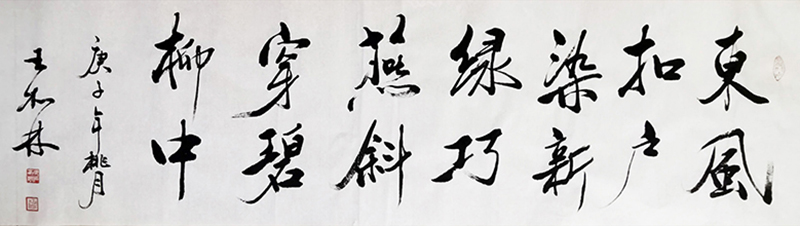 東風
扣户
染新
绿巧
燕斜
穿碧
柳中
庚子年桃月
王和林